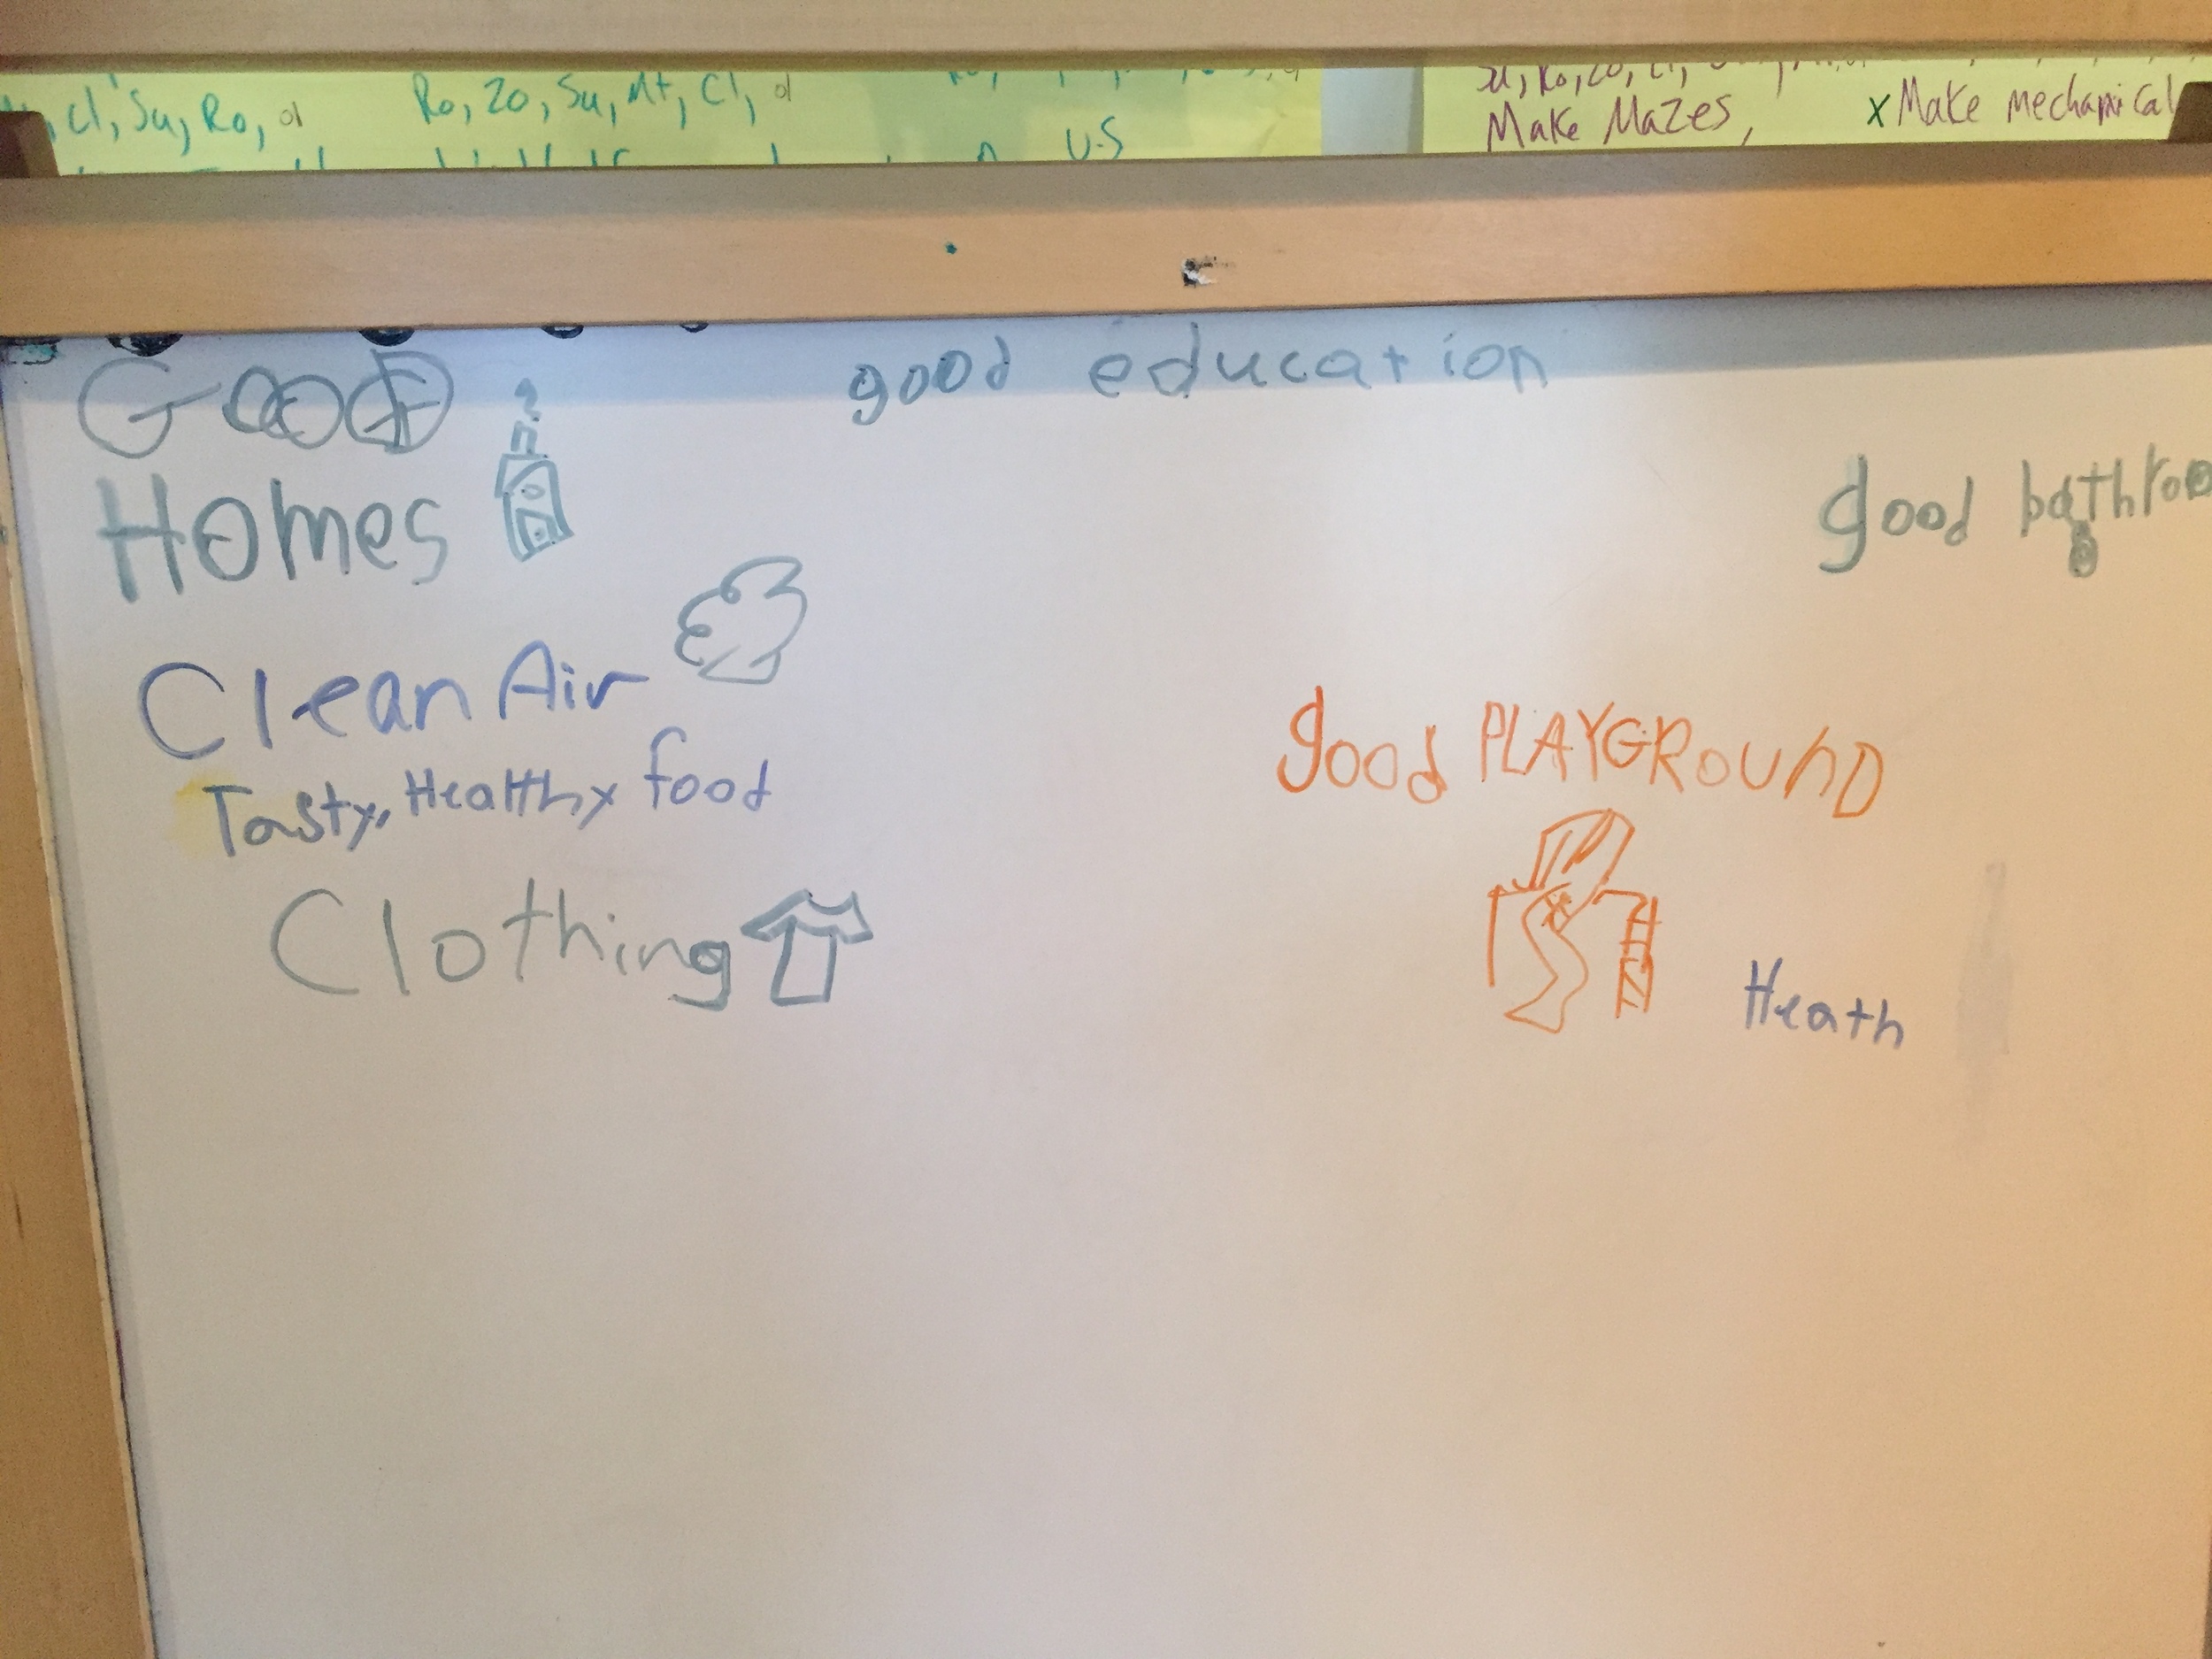 Cl, Su, Ro,
Ro, Zo, Su, Mt, Cl,
U.S
Su, Ro, Zo, Cl,
Make Mazes,
x Make mechanical
GOOD
Homes
good education
good bathroo
Clean Air
Tasty, Healthy food
good PLAYGROUND
Clothing
Heath